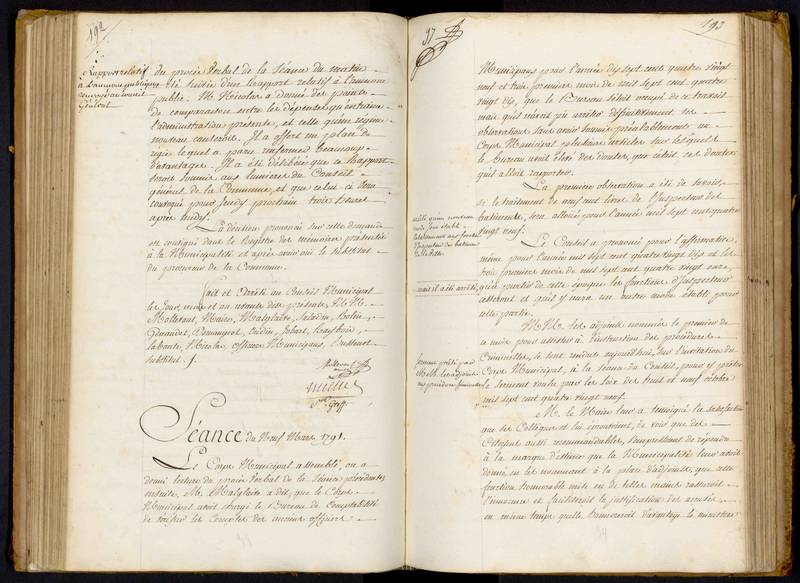 192
Rapport relatif
à l'aumone publique
renvoyé au conseil
Général
du procès Verbal de la Séance du matin
a été suivie d'un rapport relatif à l'aumone
publique. M. Nicolas a donné des points
de comparaison entre les dépenses qu'entraine
l'administration présente, et celle qu'un régime
nouveau causeroit. Il a offert un plan de
régie lequel a paru renfermer beaucoup
d'avantages. Il a été délibéré que ce Rapport
seroit soumis aux lumieres du Conseil
général de la Commune, et que celui-ci sera
convoqué pour Jeudy prochain trois heures
après midy.
La décision prononcée sur cette demande
est consignée dans le Registre des mémoires présentés
à la Municipalité et après avoir ouï le Substitut
du procureur de la Commune.
Fait et Arrêté au Conseil Municipal
les Jour, mois et an avant dits présents, M.M.
Mollerat, Maire, Malglaive, Saladin,
Nicolas, officiers Municipaux,
Substitut.
Mollerat
maire
Séance du Neuf Mars 1791.
Le Corps Municipal assemblé, on a
donné lecture du procès Verbal de la Séance précédente,
ensuite, M. Malglaive a dit, que le Corps
Municipal avoit chargé le Bureau de Comptabilité
de vérifier les Comptes des anciens officiers
97
193
Municipaux pour l'année dix sept cent quatre vingt
neuf et trois premiers mois de mil sept cent quatre
vingt dix, que le Bureau s'étoit occupé de ce travail
mais qu'il n'avoit pu arrêter définitivement ses
observations sans avoir soumis préalablement au
Corps Municipal plusieurs articles sur lesquels
le Bureau avoit élevé des doutes, que c'étoit ces doutes
qu'il alloit rapporter.
La premiere observation a été de savoir
si le traitement de neuf cent livres de l'Inspecteur des
batiments, sera alloué pour l'année mil sept cent quatre
vingt neuf.
Le Conseil a prononcé pour l'affirmative,
même pour l'année mil sept cent quatre vingt dix et les
trois premiers mois de mil sept cent quatre vingt onze,
mais il a été arrêté,
qu'à partir de cette époque les fonctions d'Inspecteur
cesseront et qu'il y aura un autre mode établi pour
cette partie.
M.M. les adjoints nommés le premier de
ce mois pour assister à l'instruction des procédures
Criminelles, se sont rendus aujourd'hui, sur l'invitation du
Corps Municipal, à la séance du Conseil, pour y prêter
le serment voulu par les loix des huit et neuf octobre
mil sept cent quatre vingt neuf.
Serment prêté par
M.M. les adjoints
aux procédures criminelles
M. le Maire leur a temoigné la satisfaction
que ses Collègues et lui éprouvoient, de voir que des
Citoyens aussi recommandables, s'empressoient de répondre
à la marque d'estime que la Municipalité leur avoit
donné, en les nommant à la place d'adjoints, que cette
fonction honorable mise en de telles mains rassuroit
l'innocence et faciliteroit la justification des accusés,
en même temps qu'elle honoreroit davantage le ministere